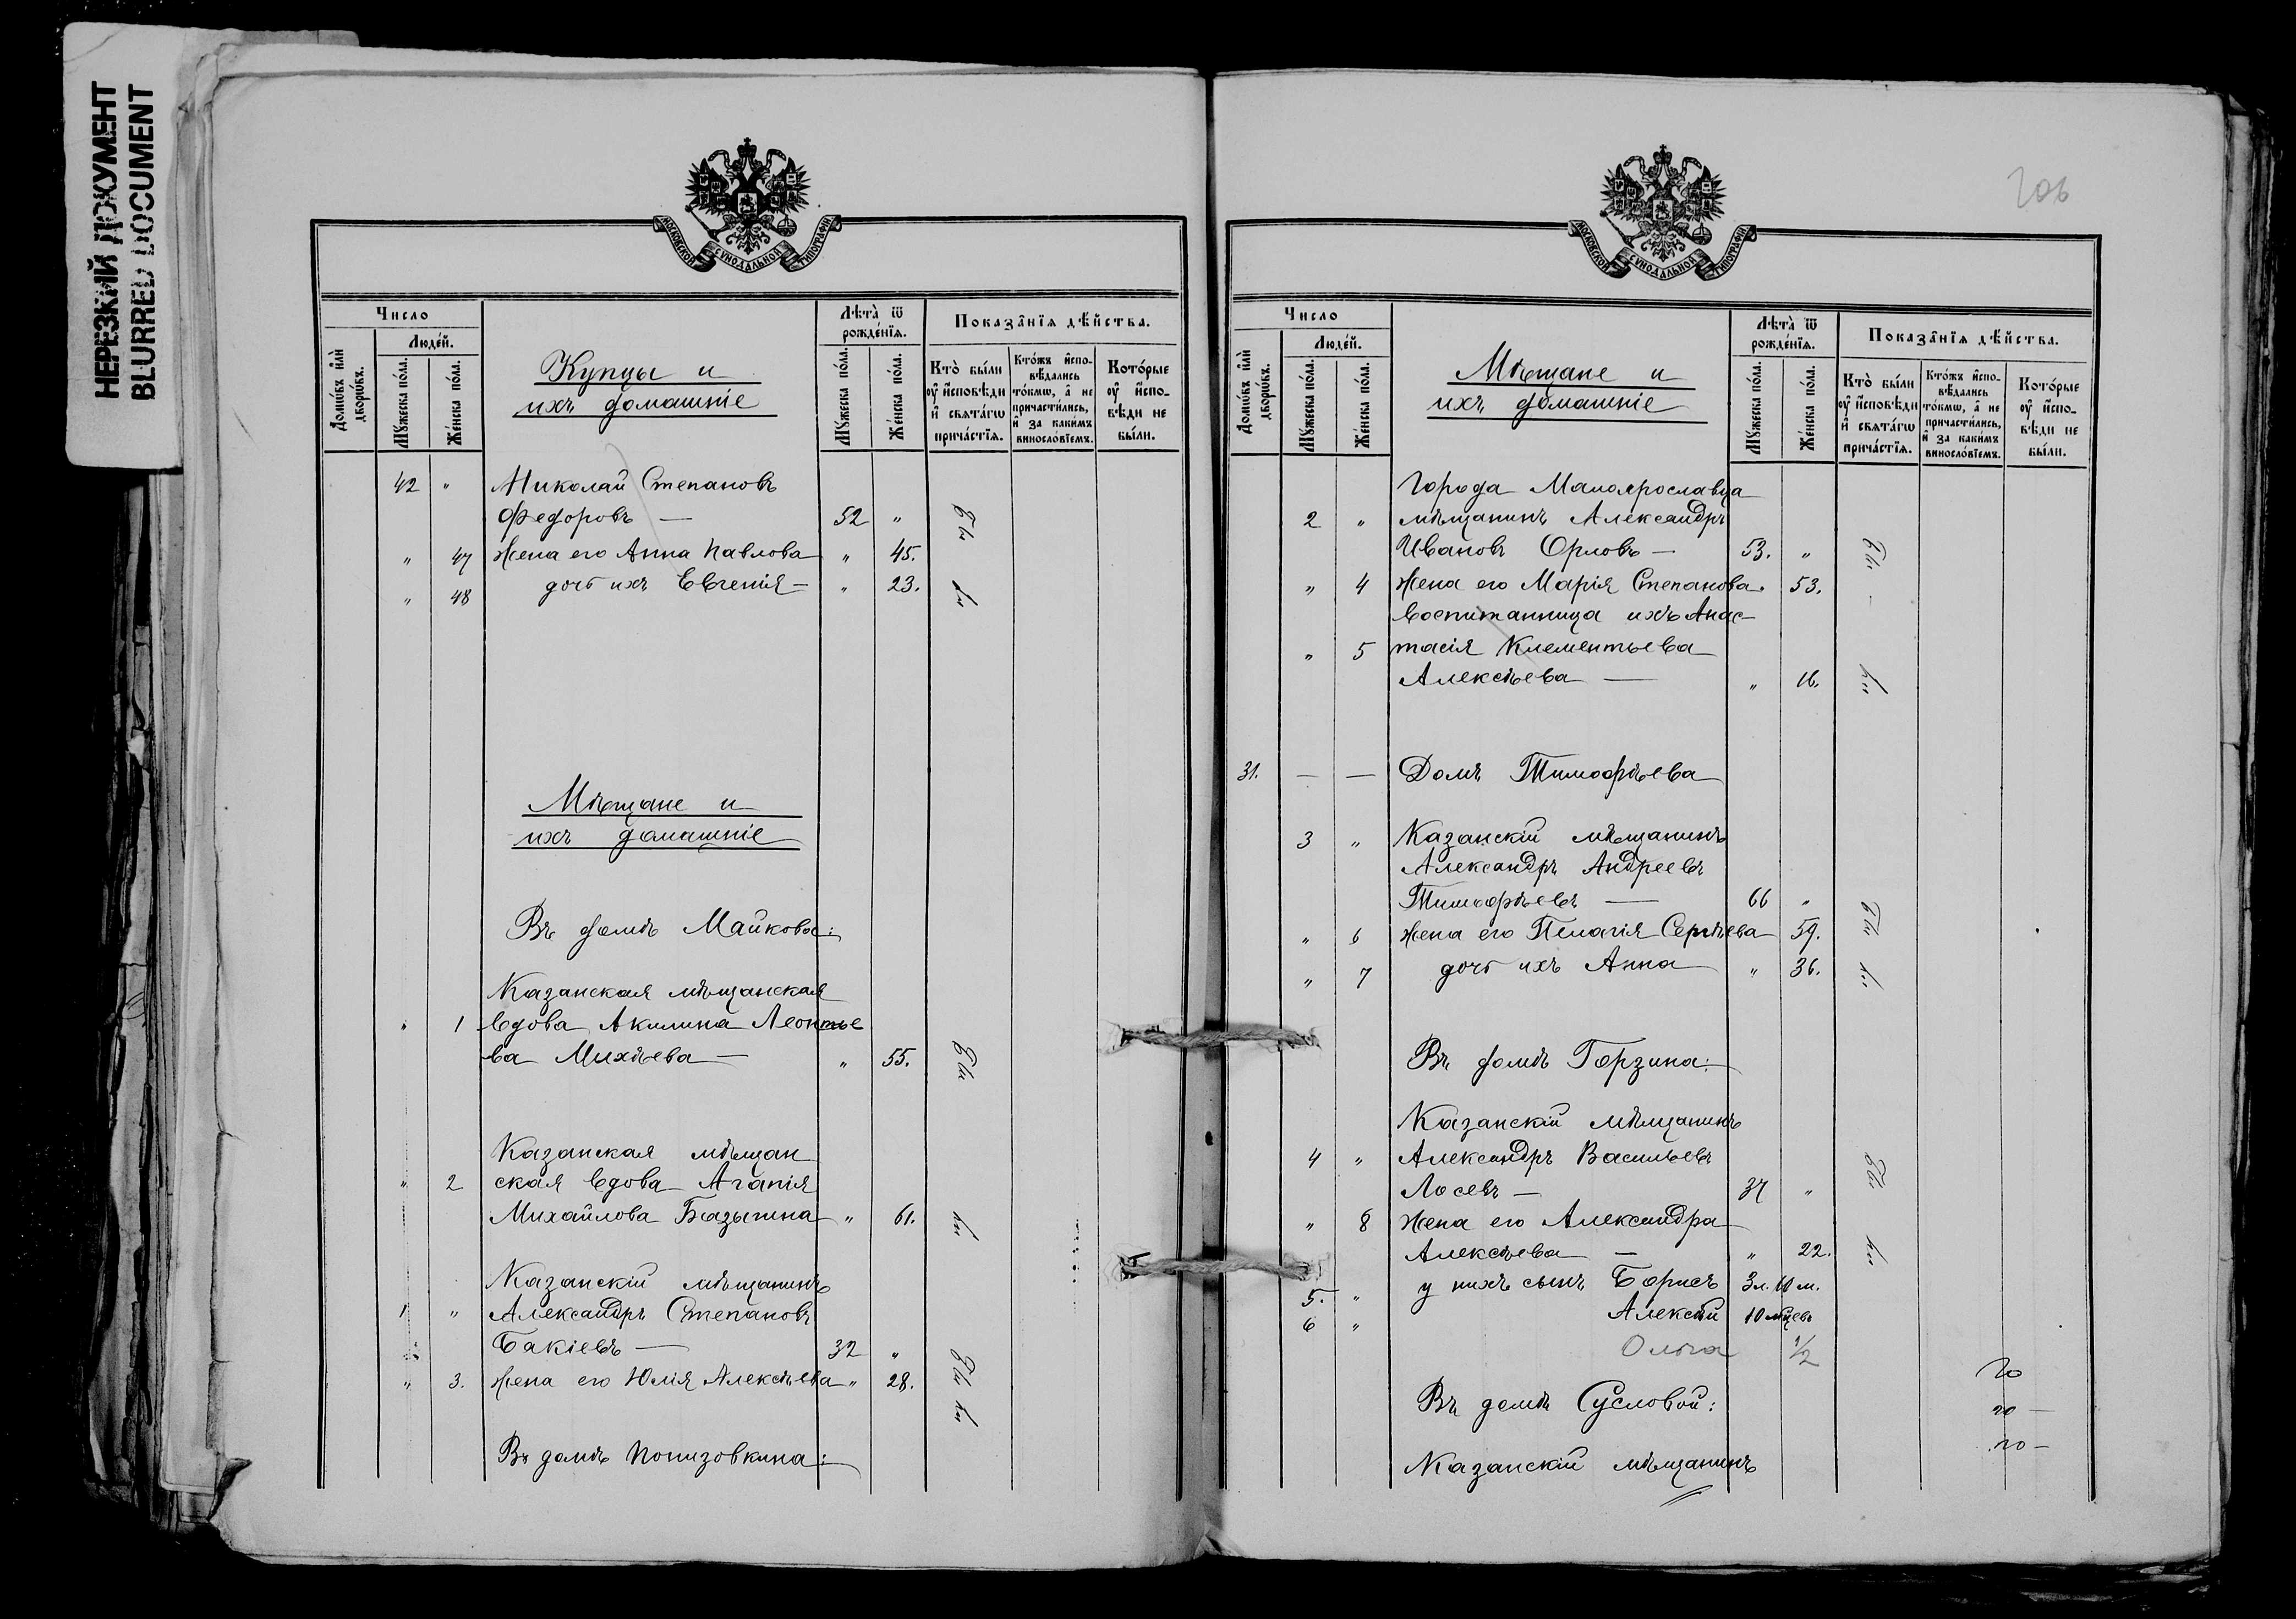 НЕРЕЗКИЙ ДОКУМЕНТ
BLURRED DOCUMENT
МОСКОВСКОЙ СУНОДАЛЬНОЙ ТИПОГРАФІИ
Число
Людей.
Домѡвъ или дворѡвъ.
Мужеска пола.
Женска пола.
Купцы и
ихъ домашніе
Лѣта ѿ
рожденія.
Мужеска пола.
Женска пола.
Показанія дѣйства.
Кто были
оу исповѣди
и свѧтагѡ
причастіѧ.
Ктожъ испо-
вѣдались
токмѡ, а не
причастились,
и за какимъ
винословіемъ.
Которые
оу испо-
вѣди не
были.
42 " Николай Степановъ
Федоровъ — 52 "
" 47 Жена его Анна Павлова " 45.
" 48 дочь ихъ Евгенія — " 23.
Мѣщане и
ихъ домашніе
Въ домѣ Майкова:
Казанская мѣщанская
" 1 вдова Акилина Леонтье
ва Михѣева — " 55.
Казанская мѣщан
" 2 ская вдова Агапія
Михайлова Базыгина " 61.
Казанскій мѣщанинъ
1 " Александръ Степановъ
Бакіевъ — 32 "
" 3. Жена его Юлія Алексѣева " 28.
Въ домѣ Понизовкина:
МОСКОВСКОЙ СУНОДАЛЬНОЙ ТИПОГРАФІИ
Число
Людей.
Домѡвъ или дворѡвъ.
Мужеска пола.
Женска пола.
Мѣщане и
ихъ домашніе
Лѣта ѿ
рожденія.
Мужеска пола.
Женска пола.
Показанія дѣйства.
Кто были
оу исповѣди
и свѧтагѡ
причастіѧ.
Ктожъ испо-
вѣдались
токмѡ, а не
причастились,
и за какимъ
винословіемъ.
Которые
оу испо-
вѣди не
были.
Города Малоярославца
2 " мѣщанинъ Александръ
Ивановъ Орловъ — 53. "
" 4 Жена его Марія Степанова. 53.
Воспитанница ихъ Анас-
" 5 тасія Клементьева
Алексѣева — " 16.
31. — — Домъ Тимофѣева
3 " Казанскій мѣщанинъ
Александръ Андреевъ
Тимофѣевъ — 66 "
" 6 Жена его Пелагія Сергѣева 59.
" 7 дочь ихъ Анна " 36.
Въ домѣ Горзина:
Казанскій мѣщанинъ
4 " Александръ Васильевъ
Лосевъ — 37 "
" 8 Жена его Александра
Алексѣева — " 22.
5. " у нихъ сынъ Борисъ 3 л. 10 м.
6 " Алексѣй 10 мѣцевъ
Ольга 1/2
Въ домѣ Сусловой:
Казанскій мѣщанинъ